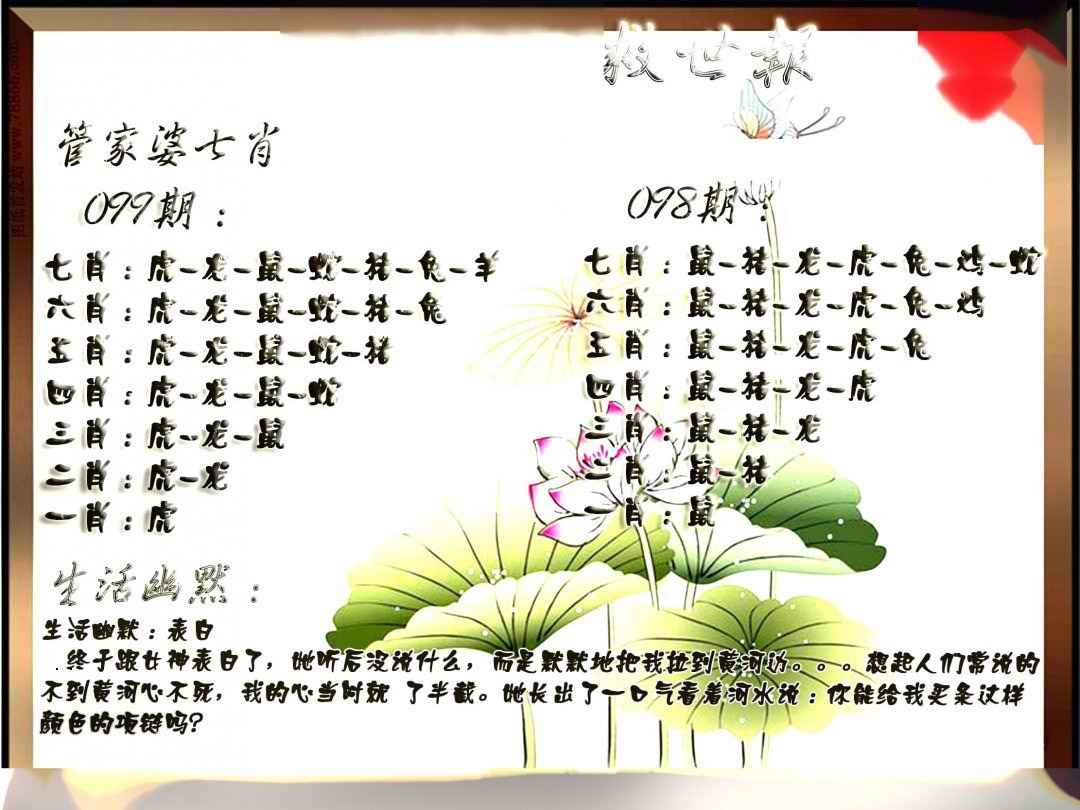 救世報
管家婆七肖
099期：
七肖：虎-龙-鼠-蛇-猪-兔-羊
六肖：虎-龙-鼠-蛇-猪-兔
五肖：虎-龙-鼠-蛇-猪
四肖：虎-龙-鼠-蛇
三肖：虎-龙-鼠
二肖：虎-龙
一肖：虎
098期：
七肖：鼠-猪-龙-虎-兔-鸡-蛇
六肖：鼠-猪-龙-虎-兔-鸡
五肖：鼠-猪-龙-虎-兔
四肖：鼠-猪-龙-虎
三肖：鼠-猪-龙
二肖：鼠-猪
一肖：鼠
生活幽默：
生活幽默：表白
.终于跟女神表白了，她听后没说什么，而是默默地把我拉到黄河边。。。想起人们常说的
不到黄河心不死，我的心当时就 了半截。她长出了一口气看着河水说：你能给我买条这样
颜色的项链吗?